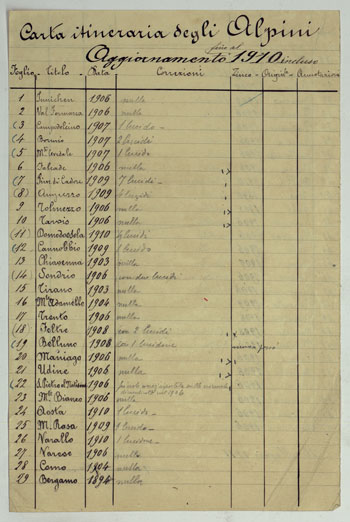 Carta itineraria degli Alpini
Aggiornamento fino al 1910 incluso
Foglio - Titolo - Data Correzioni Annotazioni
1 Innichen 1906 nulla
2 1906 nulla
(3 Campodolcino 1907 1 lucido
(4 Bormio 1907 lucidi
(5 1907 1 lucido
6 1906 nulla
(7 Pieve di Cadore 1909 7 lucidi
(8) Ampezzo 1909 lucidi
9 Tolmezzo 1906 nulla
10 Tarvis 1906 nulla
(11) Domodossola 1910 lucidi
(12 Cannobbio 1909 lucido
13 Chiavenna 1903 nulla
(14 Sondrio 1906 con due lucidi
15 Tirano 1903 nulla
16 M.te Adamello 1904 nulla
17 Trento 1906 nulla
(18 Feltre 1908 con 2 lucidi
(19 Belluno 1908 con 1
20 Maniago 1906 nulla
21 Udine 1906 nulla
(22 S. Pietro al Natisone 1906
23 M.te Bianco 1906 nulla
24 Aosta 1910 1 lucido
25 M. Rosa 1909 1 lucido
26 Varallo 1910 1
27 Varese 1906 nulla
28 Como 1894 nulla
29 Bergamo 1894 nulla